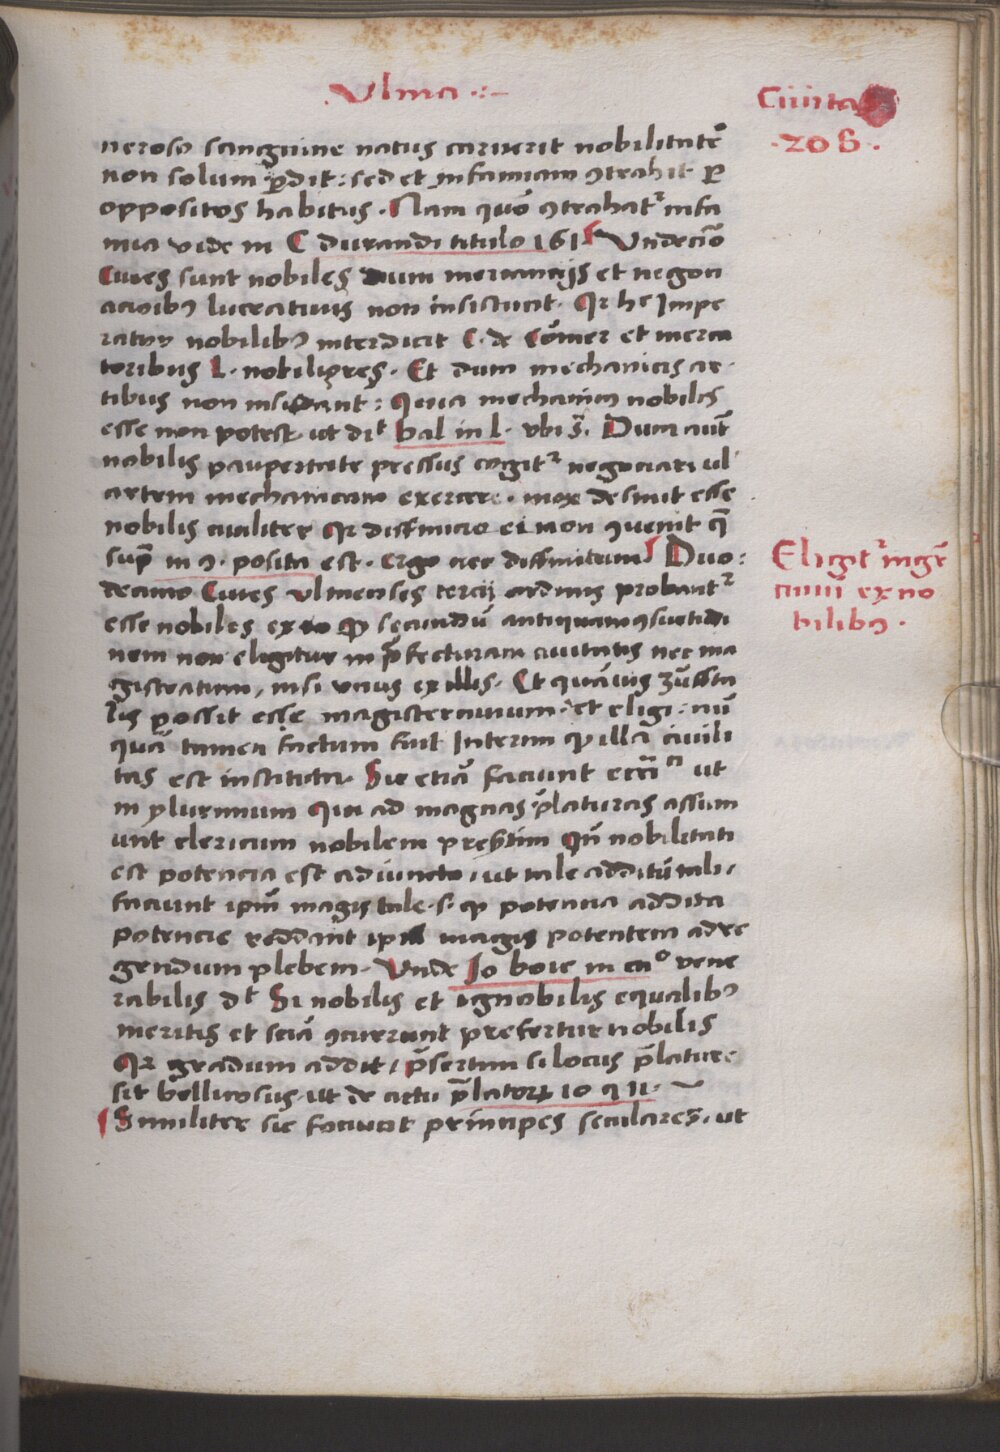 Vlma
Ciuitas
.208.
neroso sanguine natus caruerit nobilitatē
non solum ꝑdit: sed et infamiam ꝯtrahit ꝑ
oppositos habitus. Nam quō ꝯtrahatʳ infa
mia vide in C durandi titulo 161 Vndecīo
Ciues sunt nobiles dum mercancijs et negoci
acioībꝯ lucratiuis non insistunt. Qr hᶜ Impe
rator nobilibꝯ interdicit C. de Cōmer et merca
toribus L. nobiliores. Et dum mechanicis ar
tibus non insidant: Quia mechanicꝯ nobilis
esse non potest. ut diᵗ bal in l. vbi s̄. Dum aut̄
nobilis paupertate pressus cogitʳ negociari ul
artem mechanicam exercere. mox desinit esse
nobilis ciuiliter Qr diffinicio ei non ꝯuenit q̄
sup̄ in ꝯ. posita est. ergo nec diffinitum Duo:
decimo Ciues vlmenses tercij ordinis probantʳ
esse nobiles ex eo ꝙ secundū antiquam ꝯsuetudi
nem non eligitur in p̄fecturam ciuitatis nec ma
gistratum, nisi vnus ex illis. Et quāuis zūffta
lis possit esse magistercıuium. et eligi: nū
quā tamen factum fuit Interim ꝙ illa ciuili
tas est instituta. Sic etiā faciunt ecc̄iᵃ ut
in plurimum Qui ad magnas p̄laturas assum
unt clericum nobilem presertim Qn̄ nobilitati
est potencia est adiuncta, ut tale additū tali,
faciunt ipm̄ magis tale. s. ꝙ potencia addita
potencie reddant ipm̄ magis potentem ad re
gendum plebem. Vnde Jo boic in cᵒ vene
rabilis dᵗ Si nobilis et ignobilis equalibꝯ
meritis et sciā ꝯcurrunt prefertur nobilis
Qr gradum addit, p̄sertim si locus p̄lature
sit bellicosus. ut de actu p̄latoꝝ 10 q 11.
Similiter sic faciunt principes seculares. ut
Eligūtʳ mgr̄i
ciuiū ex no
bilibꝯ.